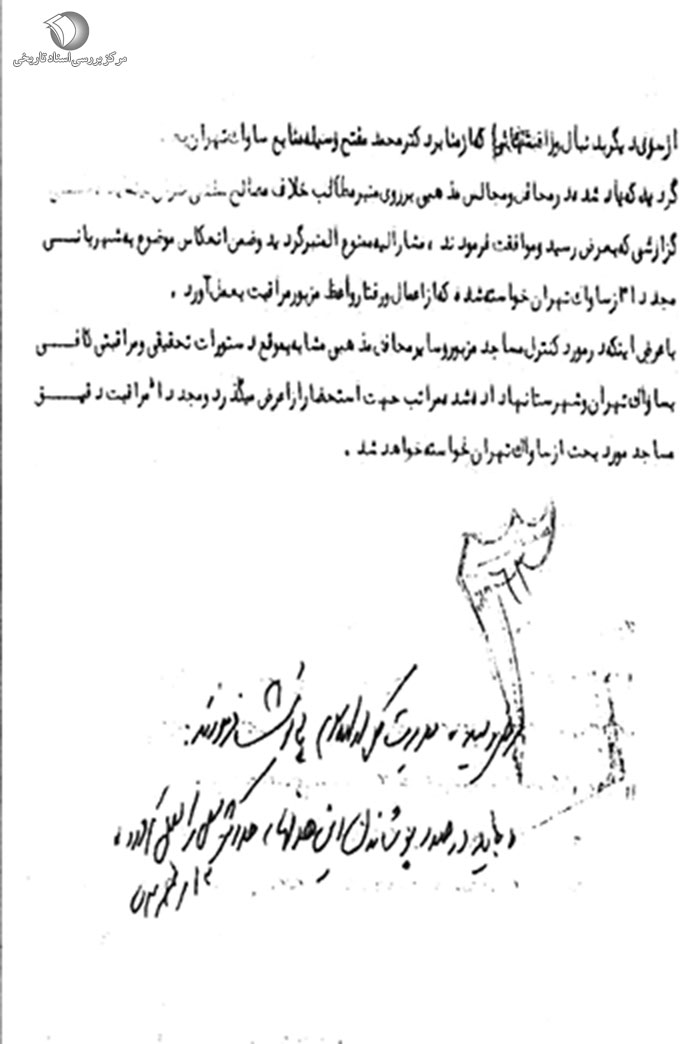 مرکز بررسی اسناد تاریخی
از سوی دیگر بدنبال وزا که از منابر دکتر محمد مفتح وسیله منابع ساواک تهران به
گردید که یاد شده در محافل و مجالس مذهبی بر روی منبر مطالب خلاف مصالح
گزارشی که بعرض رسید و موافقت فرمودند ، مشارالیه ممنوع المنبر گردید و ضمن انعکاس موضوع به شهربانی
مجدداً از ساواک تهران خواسته شد که از اعمال و رفتار واعظ مزبور مراقبت بعمل آورد .
با عرض اینکه در مورد کنترل مساجد مزبور و سایر محافل مذهبی مشابه بموقع دستورات تحقیقی و مراقبتی کافی
بساواک تهران و شهرستانها داده شده مراتب جهت استحضار از عرض میگذرد و مجدداً مراقبت دقیق
مساجد مورد بحث از ساواک تهران خواسته خواهد شد .
مدیریت کل اداره سوم پی نوشت فرمودند :
باید در صدد